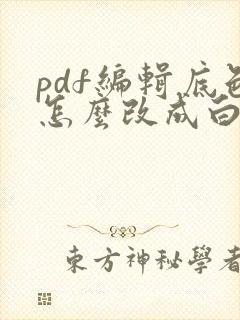 pdf編輯底色
怎麼改成白
東方神秘學者